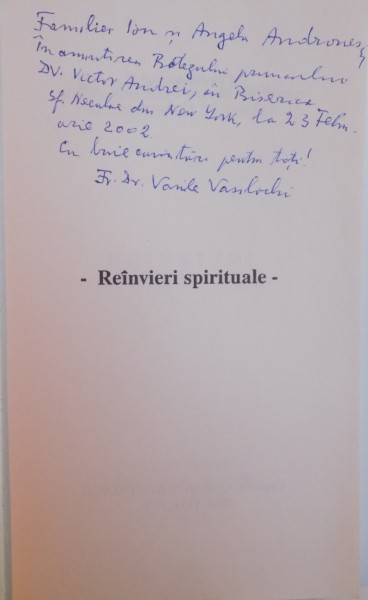 Familiei Ion și Angela Andronesc
În amintirea Botezului pruncului
DV. Victor Andrei, în Biserica
Sf. Nicolae din New York, la 23 Febru-
arie 2002.
Cu binecuvântări pentru toți!
Fr. Dr. Vasile Vasilachi
- Reînvieri spirituale -